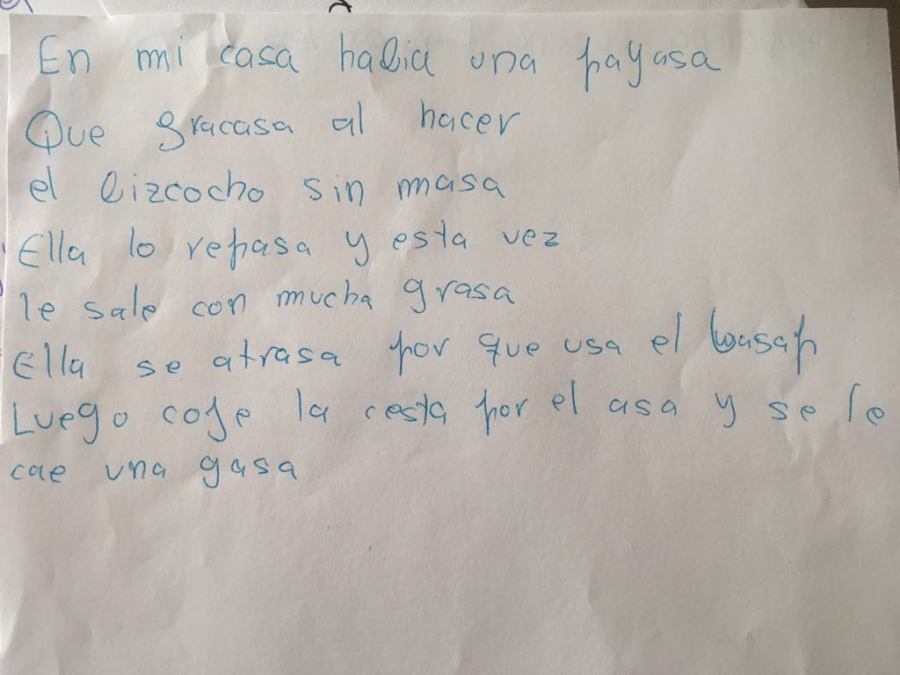 En mi casa habia una payasa
Que gracasa al hacer
el bizcocho sin masa
Ella lo repasa y esta vez
le sale con mucha grasa
Ella se atrasa por que usa el wasap
Luego coje la cesta por el asa y se le
cae una gasa